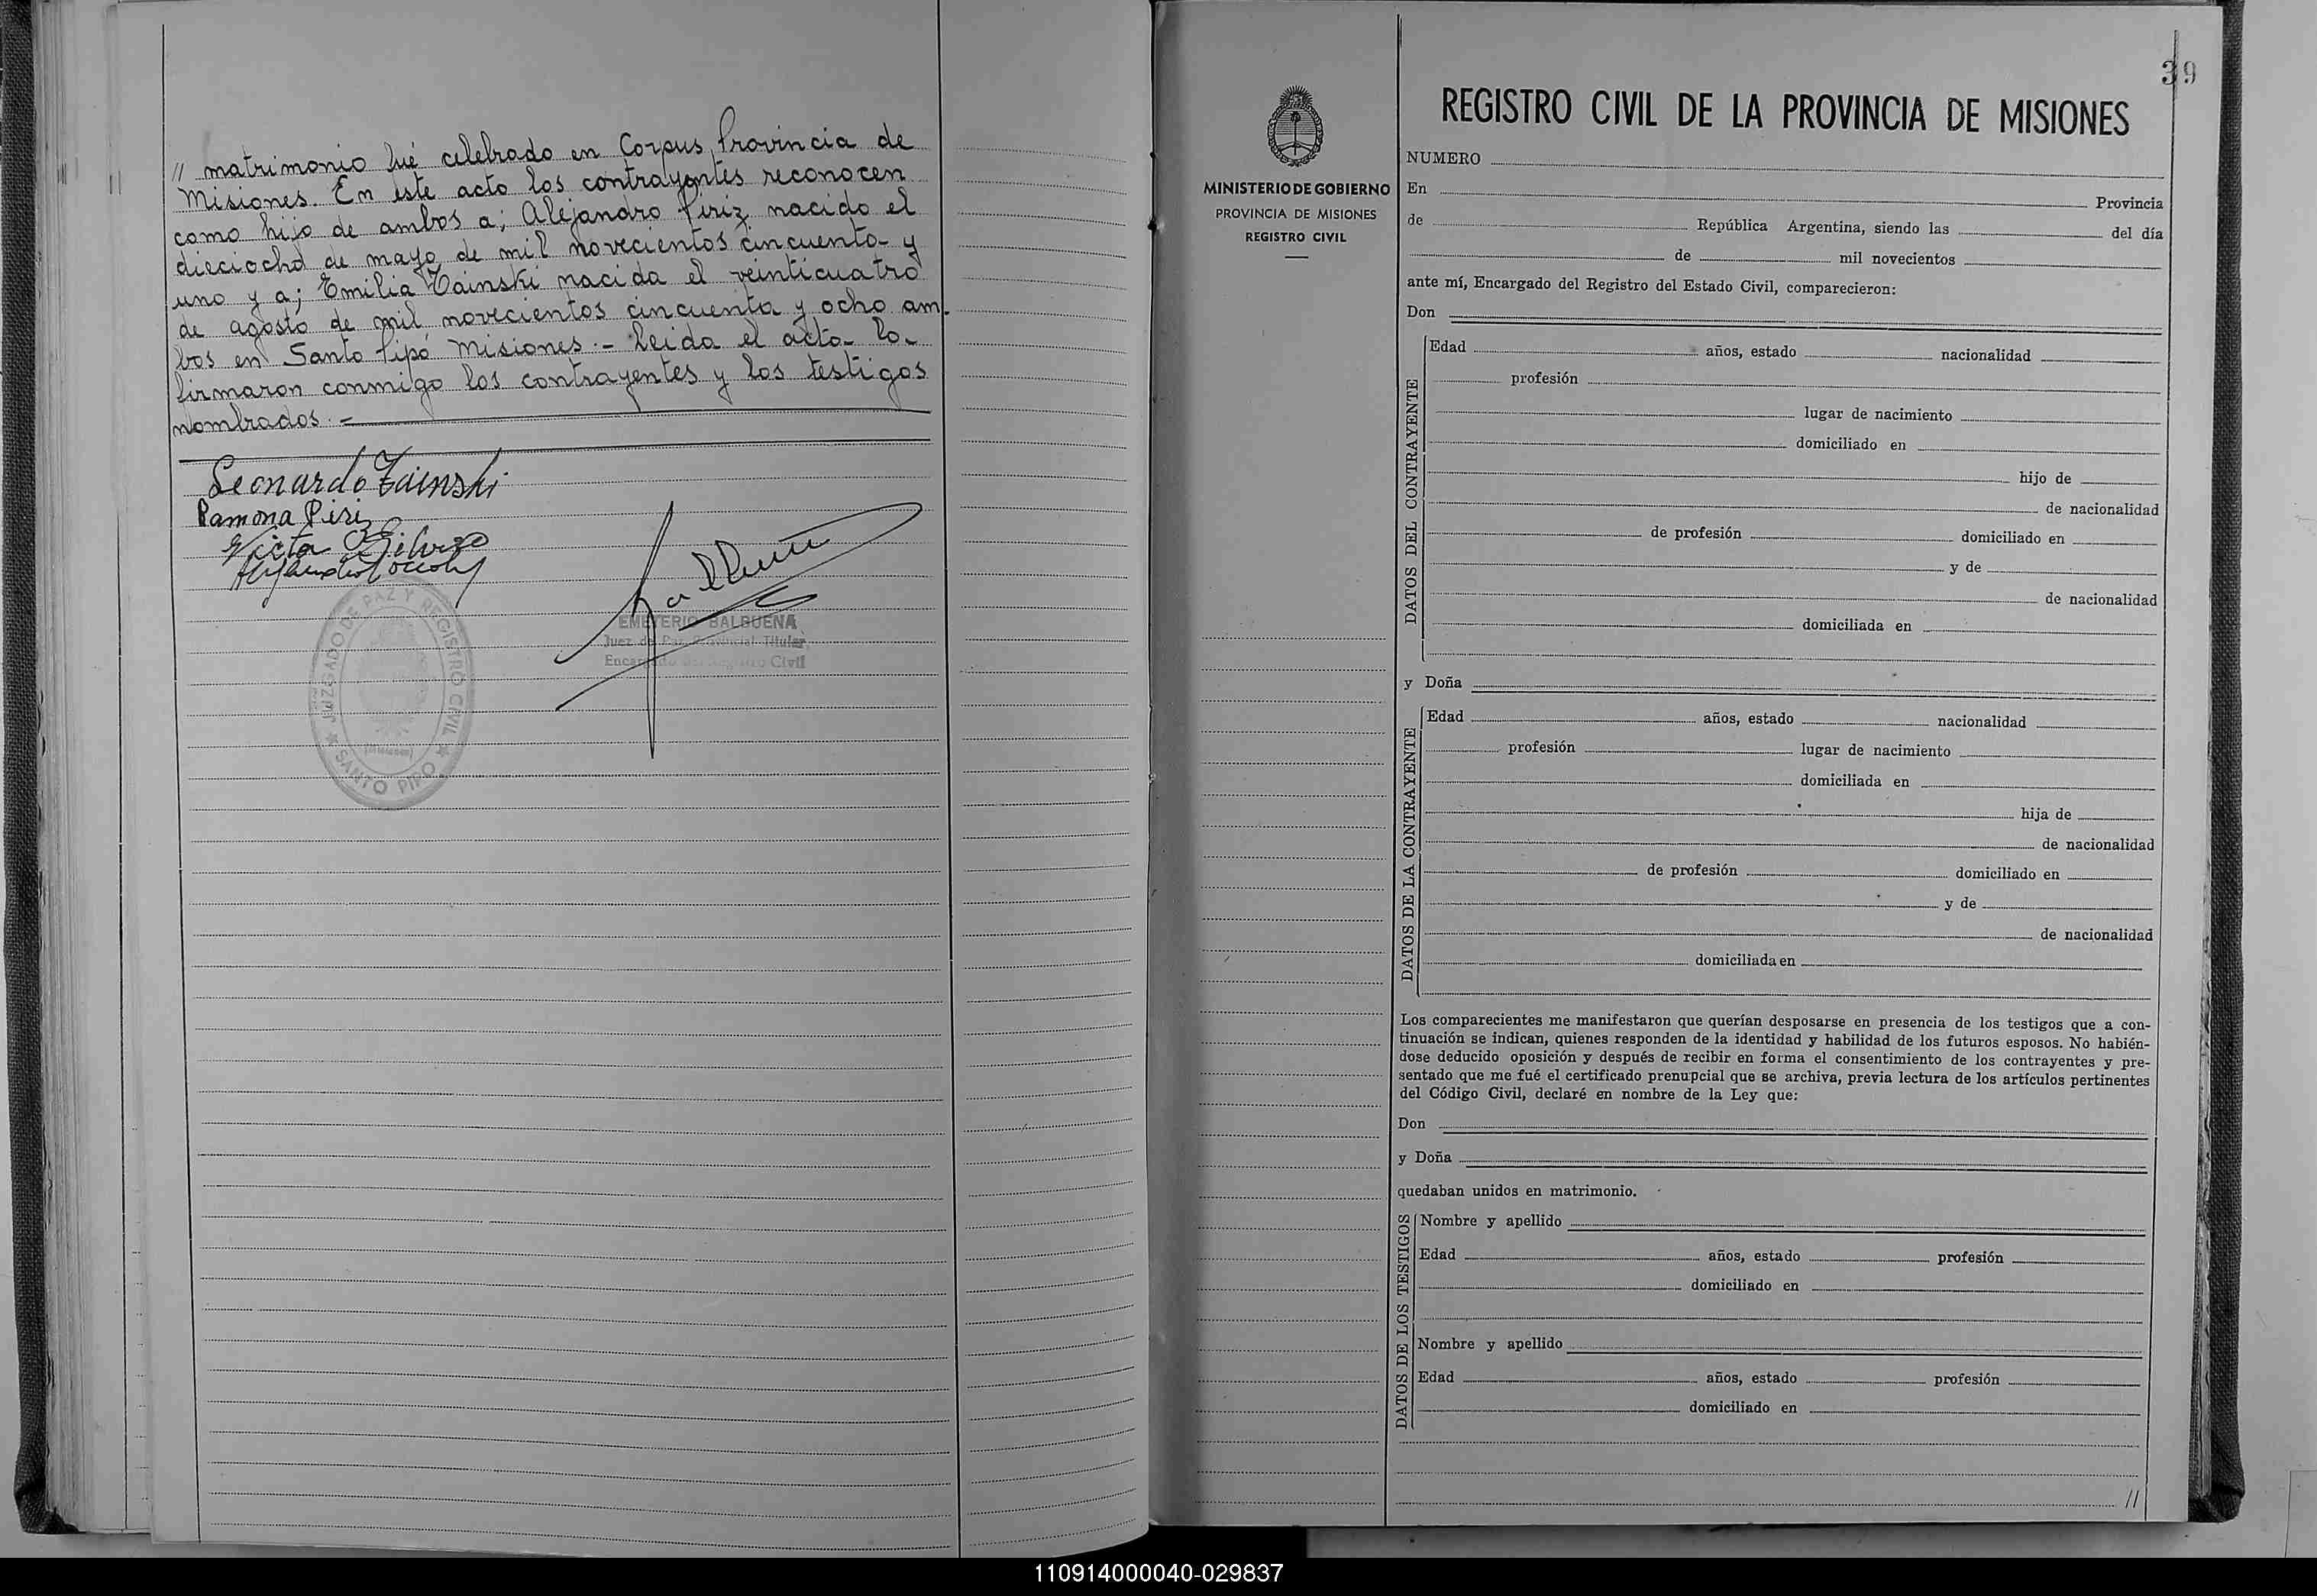 // matrimonio fué celebrado en Corpus Provincia de
Misiones. En este acto los contrayentes reconocen
como hijo de ambos a; Alejandro Piriz nacido el
dieciocho de mayo de mil novecientos cincuenta y
uno y a; Emilia Zainski nacida el veinticuatro
de agosto de mil novecientos cincuenta y ocho am
bos en Santo Pipó Misiones.- Leida el acta la
firmaron conmigo los contrayentes y los testigos
nombrados.-
Leonardo Zainski
Ramona Piriz
EMETERIO BALBUENA
Juez de Paz Titular
Encargado del Registro Civil
JUZGADO DE PAZ Y REGISTRO CIVIL
(Misiones)
SANTO PIPO
39
MINISTERIO DE GOBIERNO
PROVINCIA DE MISIONES
REGISTRO CIVIL
REGISTRO CIVIL DE LA PROVINCIA DE MISIONES
NUMERO
En Provincia
de República Argentina, siendo las del día
de mil novecientos
ante mí, Encargado del Registro del Estado Civil, comparecieron:
Don
DATOS DEL CONTRAYENTE
Edad años, estado nacionalidad
profesión
lugar de nacimiento
domiciliado en
hijo de
de nacionalidad
de profesión domiciliado en
y de
de nacionalidad
domiciliada en
y Doña
DATOS DE LA CONTRAYENTE
Edad años, estado nacionalidad
profesión lugar de nacimiento
domiciliada en
hija de
de nacionalidad
de profesión domiciliado en
y de
de nacionalidad
domiciliada en
Los comparecientes me manifestaron que querían desposarse en presencia de los testigos que a con-
tinuación se indican, quienes responden de la identidad y habilidad de los futuros esposos. No habién-
dose deducido oposición y después de recibir en forma el consentimiento de los contrayentes y pre-
sentado que me fué el certificado prenupcial que se archiva, previa lectura de los artículos pertinentes
del Código Civil, declaré en nombre de la Ley que:
Don
y Doña
quedaban unidos en matrimonio.
DATOS DE LOS TESTIGOS
Nombre y apellido
Edad años, estado profesión
domiciliado en
Nombre y apellido
Edad años, estado profesión
domiciliado en
//
110914000040-029837